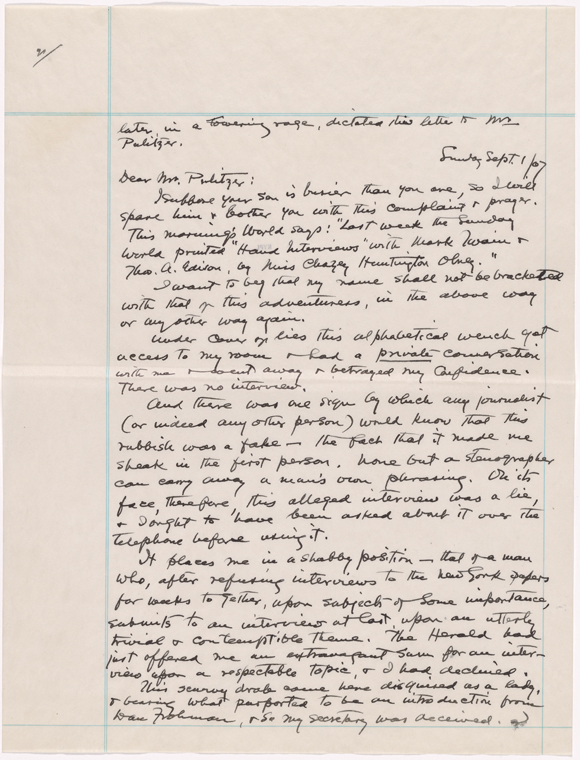 21
later, in a towering rage, dictated this letter to Mr.
Pulitzer.
Sunday Sept. 1/07
Dear Mr. Pulitzer:
I suppose your son is busier than you are, so I will
spare him & bother you with this complaint & prayer.
This morning's World says: "Last week the Sunday
World printed "Hand Interviews" with Mark Twain &
Tho. A. Edison, by Miss Huntington Olney."
I want to beg that my name shall not be bracketed
with that of this adventuress, in the above way
or any other way again.
Under cover of lies this alphabetical wench got
access to my room & had a private conversation
with me & went away & betrayed my confidence.
There was no interview.
And there was one sign by which any journalist
(or indeed any other person) would know that this
rubbish was a fake — the fact that it made me
speak in the first person. None but a stenographer
can carry away a man's own phrasing. On its
face, therefore, this alleged interview was a lie,
& I ought to have been asked about it over the
telephone before using it.
It places me in a shabby position — that of a man
who, after refusing interviews to the New York papers
for weeks together, upon subjects of some importance,
submits to an interview at last, upon an utterly
trivial & contemptible theme. The Herald had
just offered me an extravagant sum for an inter-
view upon a respectable topic, & I had declined.
This scurvy drab came here disguised as a lady,
& bearing what purported to be an introduction from
Dan Frohman, & so my secretary was deceived.